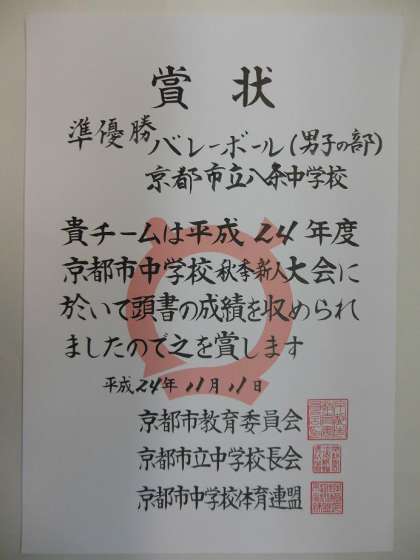 賞状
準優勝 バレーボール(男子の部)
京都市立八条中学校
貴チームは平成24年度
京都市中学校秋季新人大会に
於いて頭書の成績を収められ
ましたので之を賞します
平成24年11月11日
京都市教育委員会
京都市立中学校長会
京都市中学校体育連盟